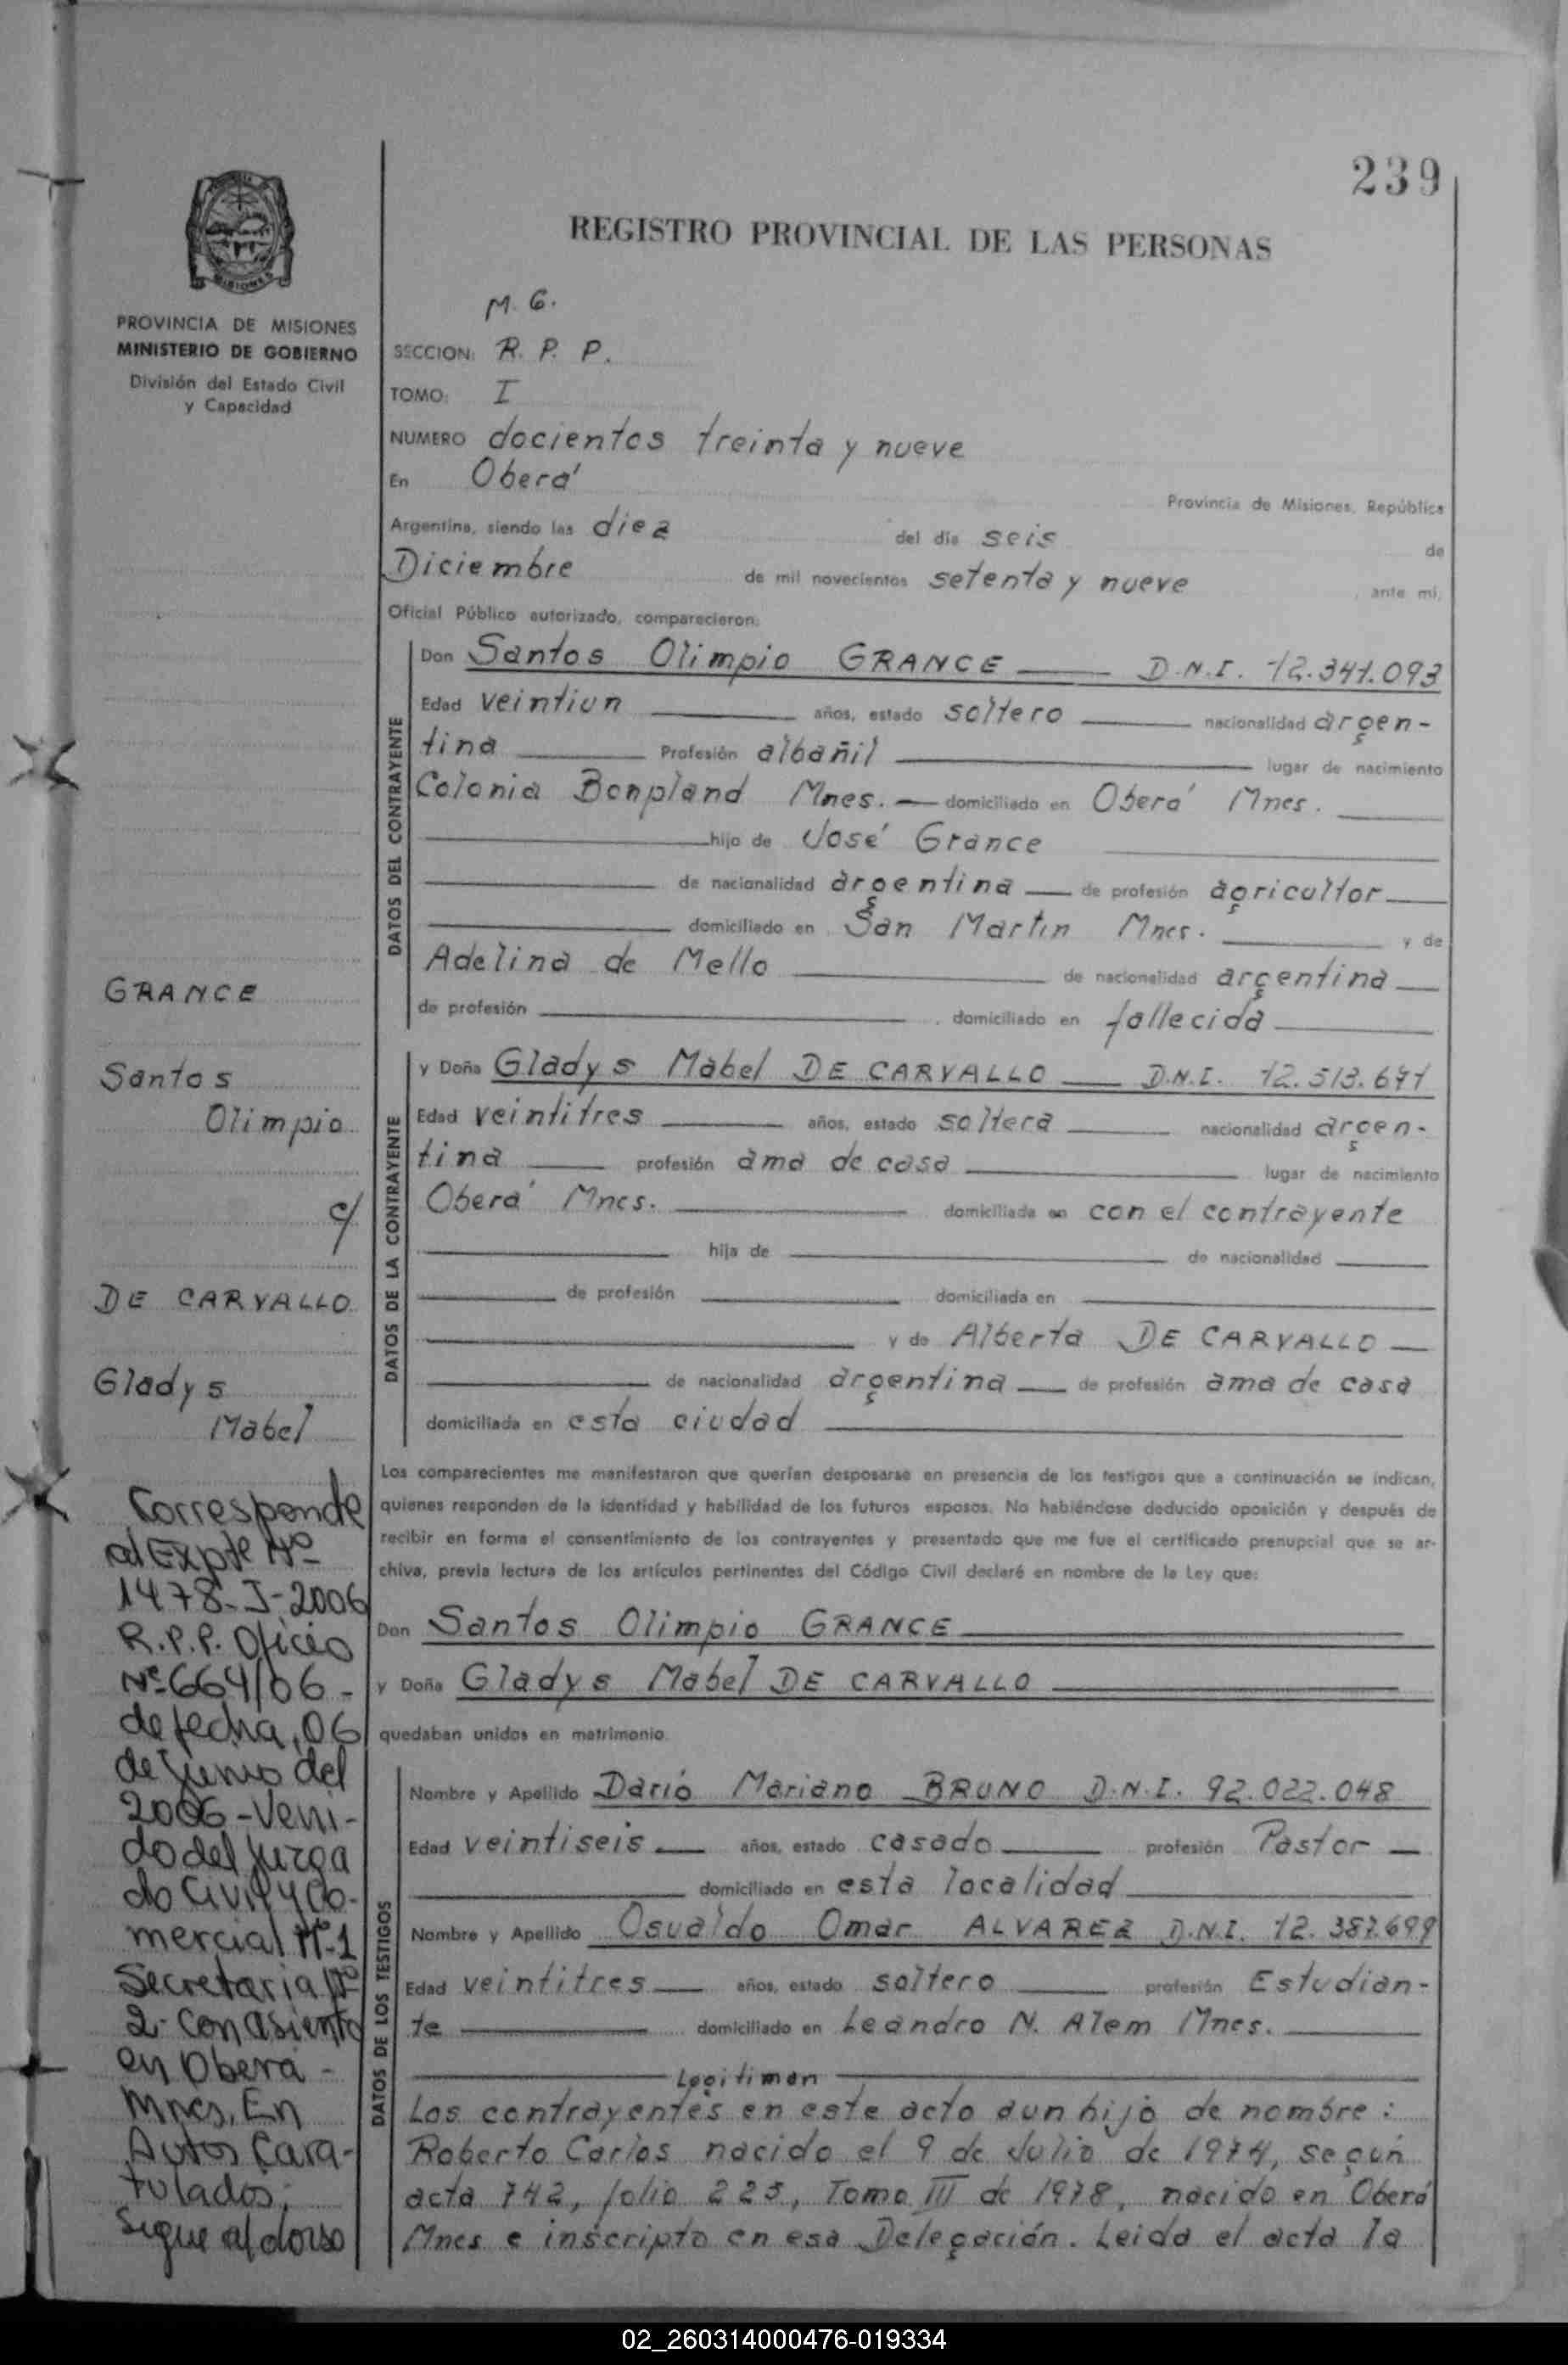 239
REGISTRO PROVINCIAL DE LAS PERSONAS
MISIONES
PROVINCIA DE MISIONES
MINISTERIO DE GOBIERNO
División del Estado Civil
y Capacidad
M. G.
SECCION: R. P. P.
TOMO: I
NUMERO docientos treinta y nueve
En Oberá
Provincia de Misiones, República
Argentina, siendo las diez del día seis de
Diciembre de mil novecientos setenta y nueve ante mí,
Oficial Público autorizado, comparecieron:
DATOS DEL CONTRAYENTE
Don Santos Olimpio GRANCE D.N.I. 12.341.093
Edad veintiun años, estado soltero nacionalidad argen-
tina Profesión albañil lugar de nacimiento
Colonia Bonpland Mnes. domiciliado en Oberá Mnes.
hijo de José Grance
de nacionalidad argentina de profesión agricultor
domiciliado en San Martin Mnes. y de
Adelina de Mello de nacionalidad argentina
de profesión , domiciliado en fallecida
DATOS DE LA CONTRAYENTE
y Doña Gladys Mabel DE CARVALLO D.N.I. 12.513.671
Edad veintitres años, estado soltera nacionalidad argen-
tina profesión ama de casa lugar de nacimiento
Oberá Mnes. domiciliada en con el contrayente
hija de de nacionalidad
de profesión domiciliada en
y de Alberta DE CARVALLO
de nacionalidad argentina de profesión ama de casa
domiciliada en esta ciudad
Los comparecientes me manifestaron que querían desposarse en presencia de los testigos que a continuación se indican,
quienes responden de la identidad y habilidad de los futuros esposos. No habiéndose deducido oposición y después de
recibir en forma el consentimiento de los contrayentes y presentado que me fue el certificado prenupcial que se ar-
chiva, previa lectura de los artículos pertinentes del Código Civil declaré en nombre de la Ley que:
Don Santos Olimpio GRANCE
y Doña Gladys Mabel DE CARVALLO
quedaban unidos en matrimonio.
DATOS DE LOS TESTIGOS
Nombre y Apellido Darió Mariano BRUNO D.N.I. 92.022.048
Edad veintiseis años, estado casado profesión Pastor
domiciliado en esta localidad
Nombre y Apellido Osualdo Omar ALVAREZ D.N.I. 12.387.699
Edad veintitres años, estado soltero profesión Estudian-
te domiciliado en Leandro N. Alem Mnes.
Legitiman
Los contrayentes en este acto aun hijo de nombre:
Roberto Carlos nacido el 9 de Julio de 1974, según
acta 742, folio 225, Tomo III de 1978, nacido en Oberá
Mnes e inscripto en esa Delegación. Leida el acta la
GRANCE
Santos
Olimpio
c/
DE CARVALLO
Gladys
Mabel
Corresponde
al Expte Nº
1478-J-2006
R.P.P. Oficio
Nº 664/06-
de fecha, 06
de Junio del
2006-Veni-
do del Juzga
do Civil y Co-
mercial Nº-1
Secretaria Nº
2- Con asiento
en Oberá-
Mnes, En
Autos Cara-
tulados;
Sigue al dorso
02_260314000476-019334